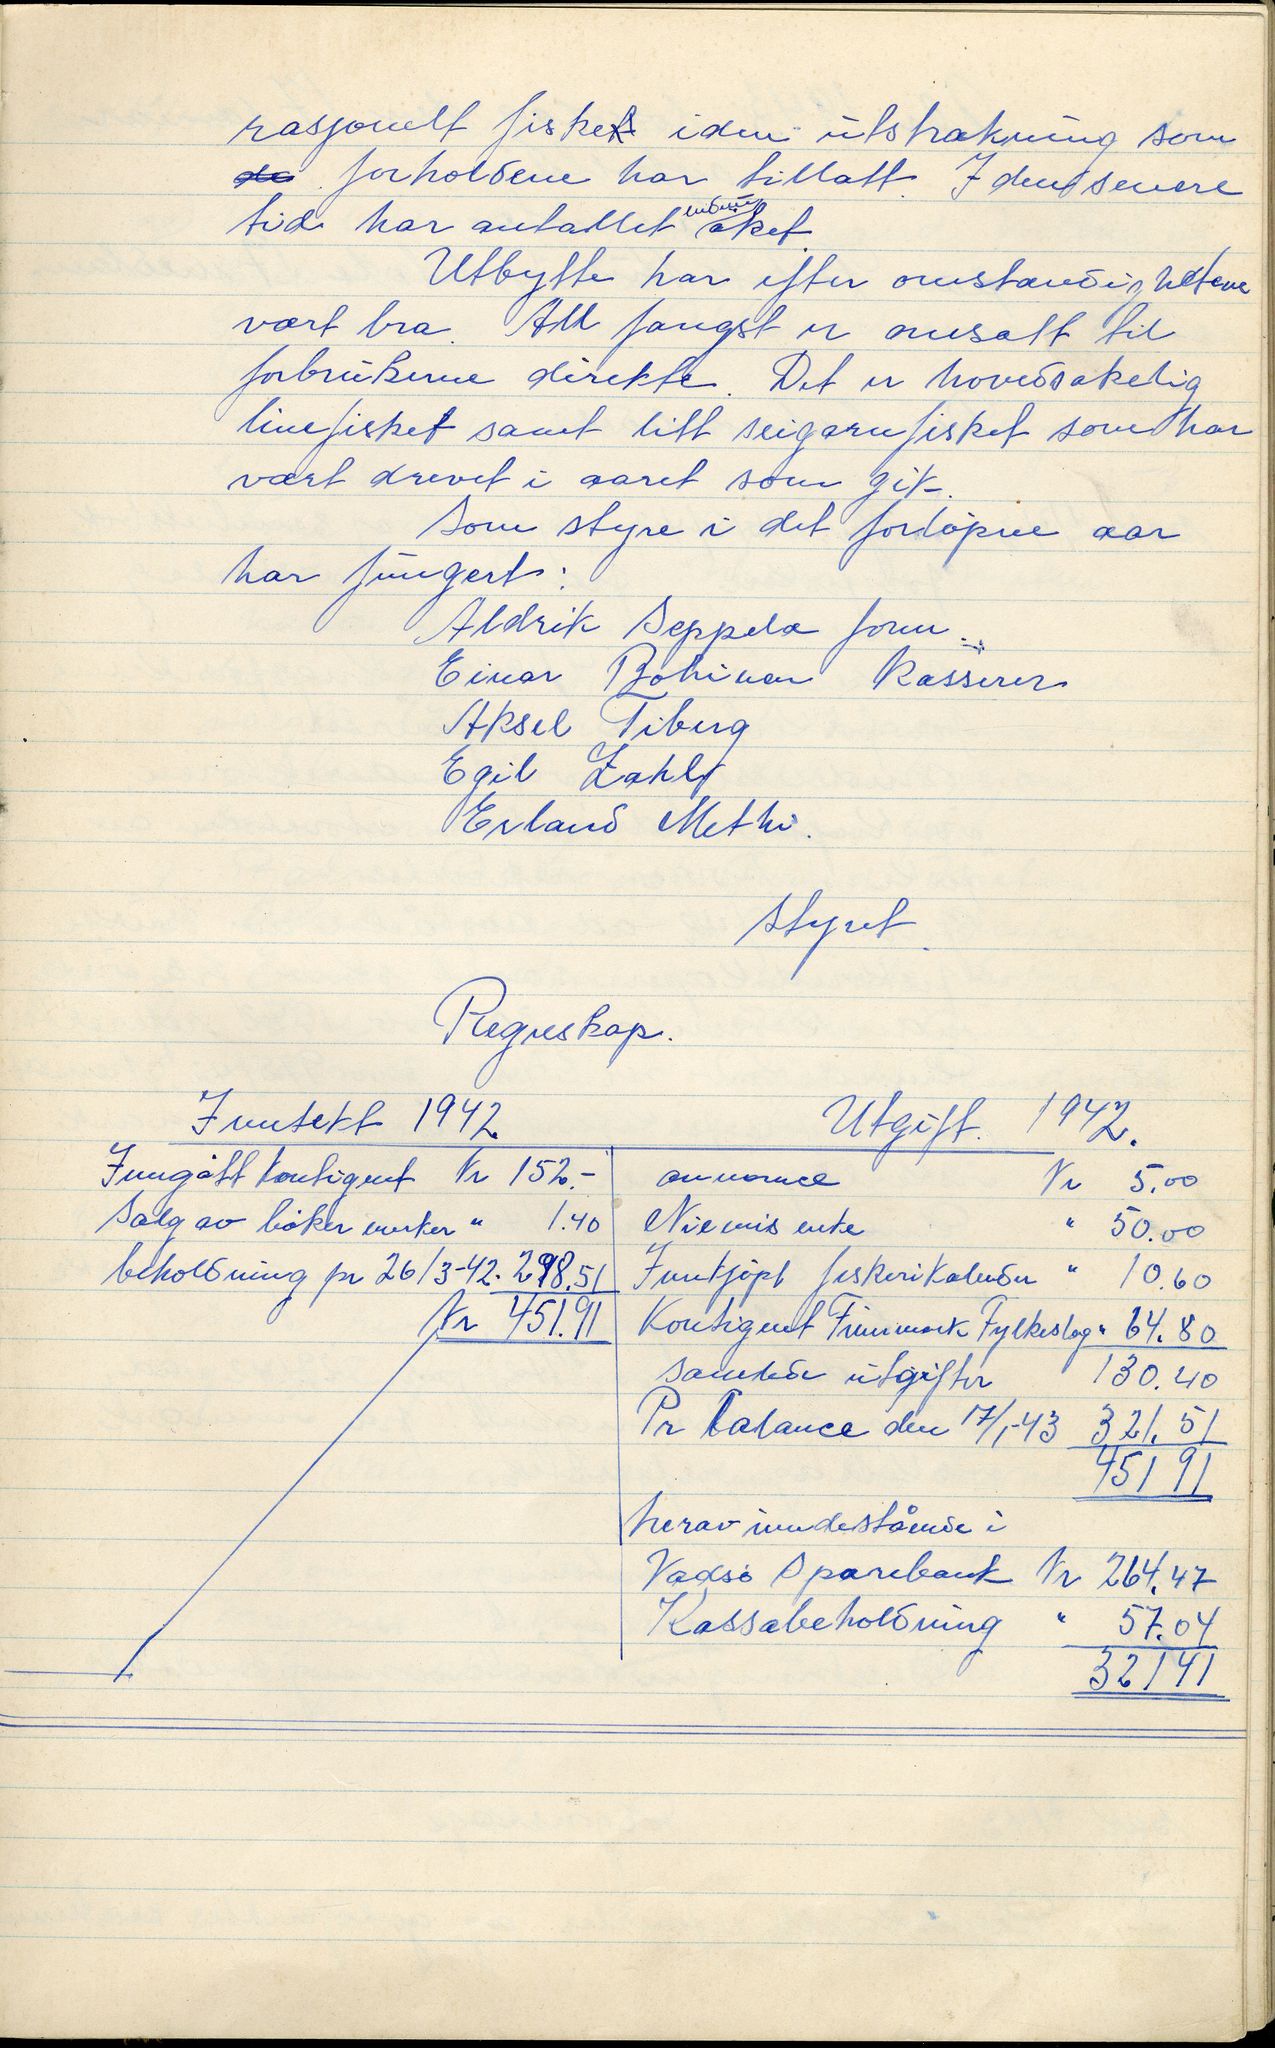 rasjonelt fiske iden utstrækning som
forholdene har tillatt. I den senere
tid har antallet øket.
Utbytte har efter omstændighetene
vært bra. All fangst er omsatt til
forbrukerne direkte. Det er hovedsakelig
linefisket samt litt seigarnfisket som har
vært drevet i aaret som gik.
Som styre i det forløpne aar
har fungert:
Aldrik Seppela form.
Einar Bohinen Kasserer
Aksel Tiberg
Egil Zahl
Erland Methi.
Styret.
Regneskap.
Inntekt 1942.
Inngått kontigent Kr 152.-
Salg av bøker merker " 1.40
beholdning pr 26/3-42. 298.51
Kr 451.91
Utgift. 1942.
annonce Kr 5.00
Niemis enke " 50.00
Innkjøpt fiskerikalender " 10.60
Kontigent Finnmark Fylkeslag " 64.80
samlede utgifter 130.40
Pr balance den 17/1-43 321.51
451 91
herav innestående i
Vadsø Sparebank Kr 264.47
Kassabeholdning " 57.04
321 41